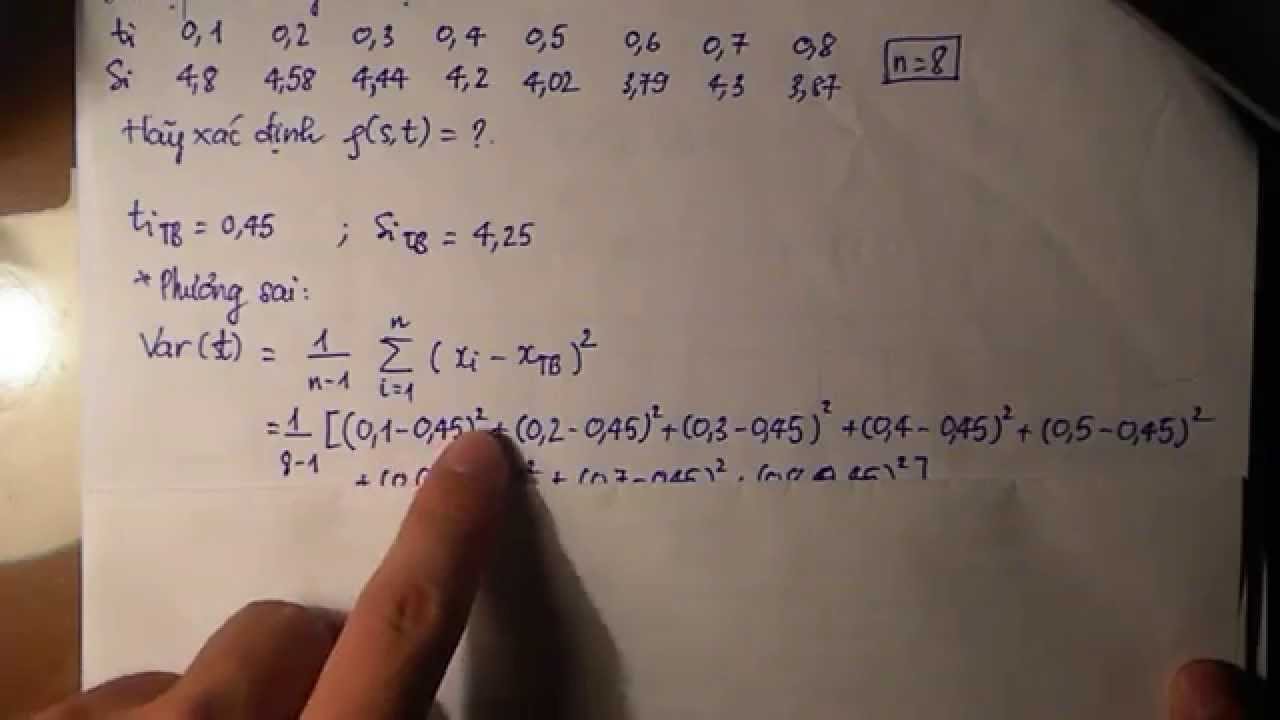 ti 0,1 0,2 0,3 0,4 0,5 0,6 0,7 0,8 n=8
Si 4,8 4,58 4,44 4,2 4,02 3,79 4,3 3,87
Hãy xác định ρ(s,t) = ?
ti TB = 0,45 ; Si TB = 4,25
* Phương sai:
Var(t) = 1/(n-1) Σ_{i=1}^{n} (xi - xTB)²
= 1/(8-1) [(0,1-0,45)² + (0,2-0,45)² + (0,3-0,45)² + (0,4-0,45)² + (0,5-0,45)²
² + (0,7-0,45)²